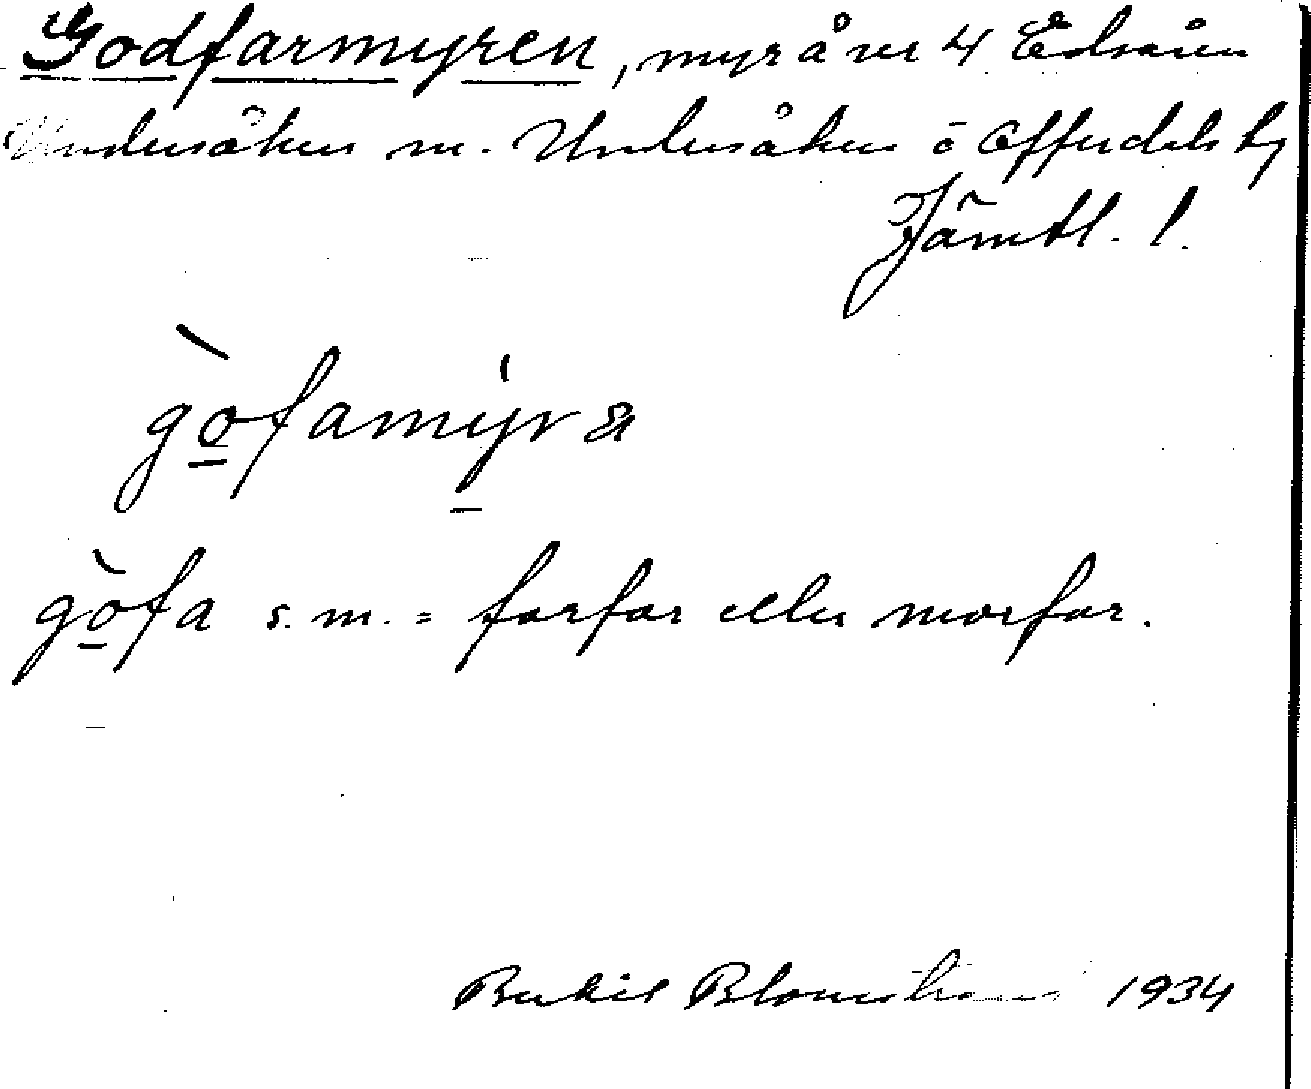 Godfarmyren, myr å nr 4 Edsåsen
Undersåker sn. Undersåkers o Offerdals tg
Jämtl. l.
gòfamy̍ra
gòfa s. m. = farfar eller morfar.
Bertil Blomstrand 1934